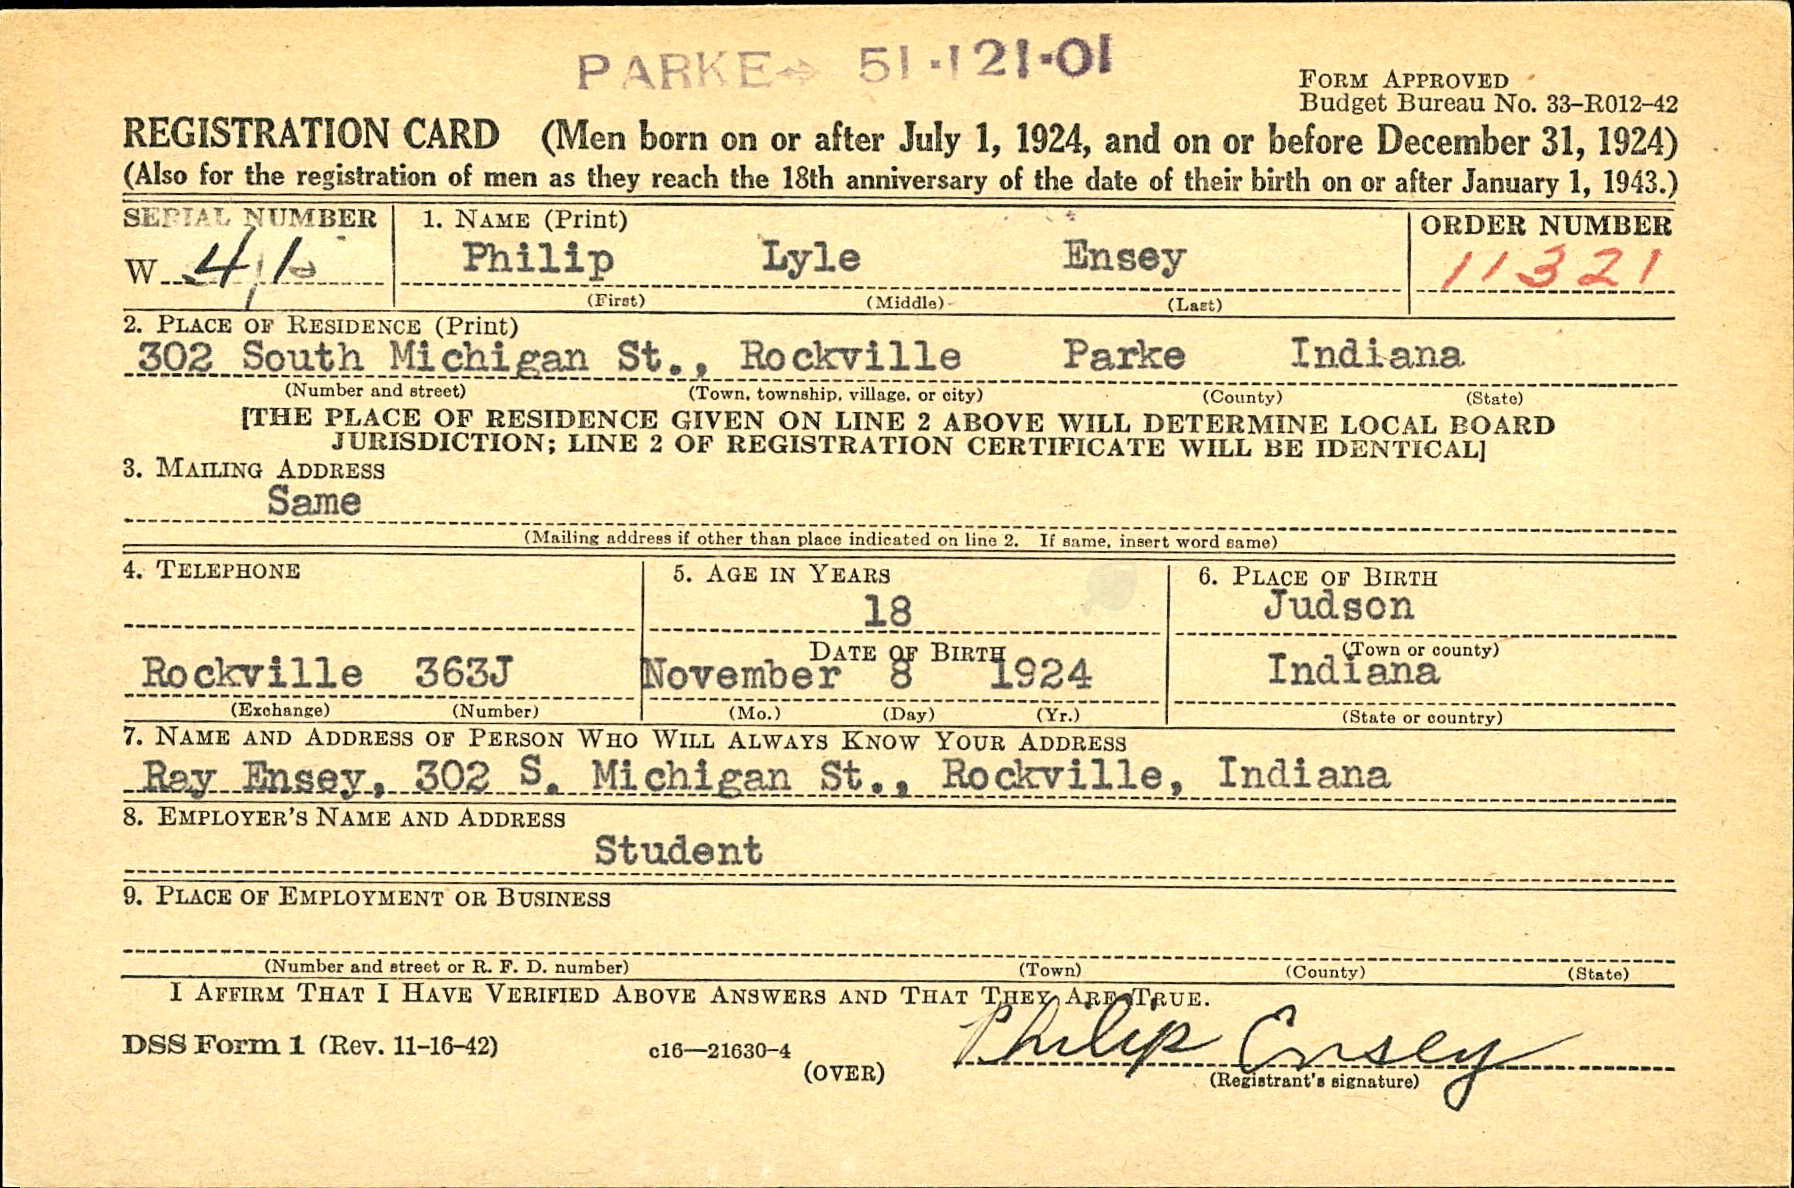 PARKE 51-121-01
FORM APPROVED
Budget Bureau No. 33-R012-42
REGISTRATION CARD (Men born on or after July 1, 1924, and on or before December 31, 1924)
(Also for the registration of men as they reach the 18th anniversary of the date of their birth on or after January 1, 1943.)
SERIAL NUMBER 1. NAME (Print) ORDER NUMBER
W Philip Lyle Ensey 11321
(First) (Middle) (Last)
2. PLACE OF RESIDENCE (Print)
302 South Michigan St., Rockville Parke Indiana
(Number and street) (Town, township, village, or city) (County) (State)
[THE PLACE OF RESIDENCE GIVEN ON LINE 2 ABOVE WILL DETERMINE LOCAL BOARD
JURISDICTION; LINE 2 OF REGISTRATION CERTIFICATE WILL BE IDENTICAL]
3. MAILING ADDRESS
Same
(Mailing address if other than place indicated on line 2. If same, insert word same)
4. TELEPHONE 5. AGE IN YEARS 6. PLACE OF BIRTH
18 Judson
DATE OF BIRTH (Town or county)
Rockville 363J November 8 1924 Indiana
(Exchange) (Number) (Mo.) (Day) (Yr.) (State or country)
7. NAME AND ADDRESS OF PERSON WHO WILL ALWAYS KNOW YOUR ADDRESS
Ray Ensey, 302 S. Michigan St., Rockville, Indiana
8. EMPLOYER'S NAME AND ADDRESS
Student
9. PLACE OF EMPLOYMENT OR BUSINESS
(Number and street or R. F. D. number) (Town) (County) (State)
I AFFIRM THAT I HAVE VERIFIED ABOVE ANSWERS AND THAT THEY ARE TRUE.
DSS Form 1 (Rev. 11-16-42) c16—21630-4 Philip Ensey
(OVER) (Registrant's signature)